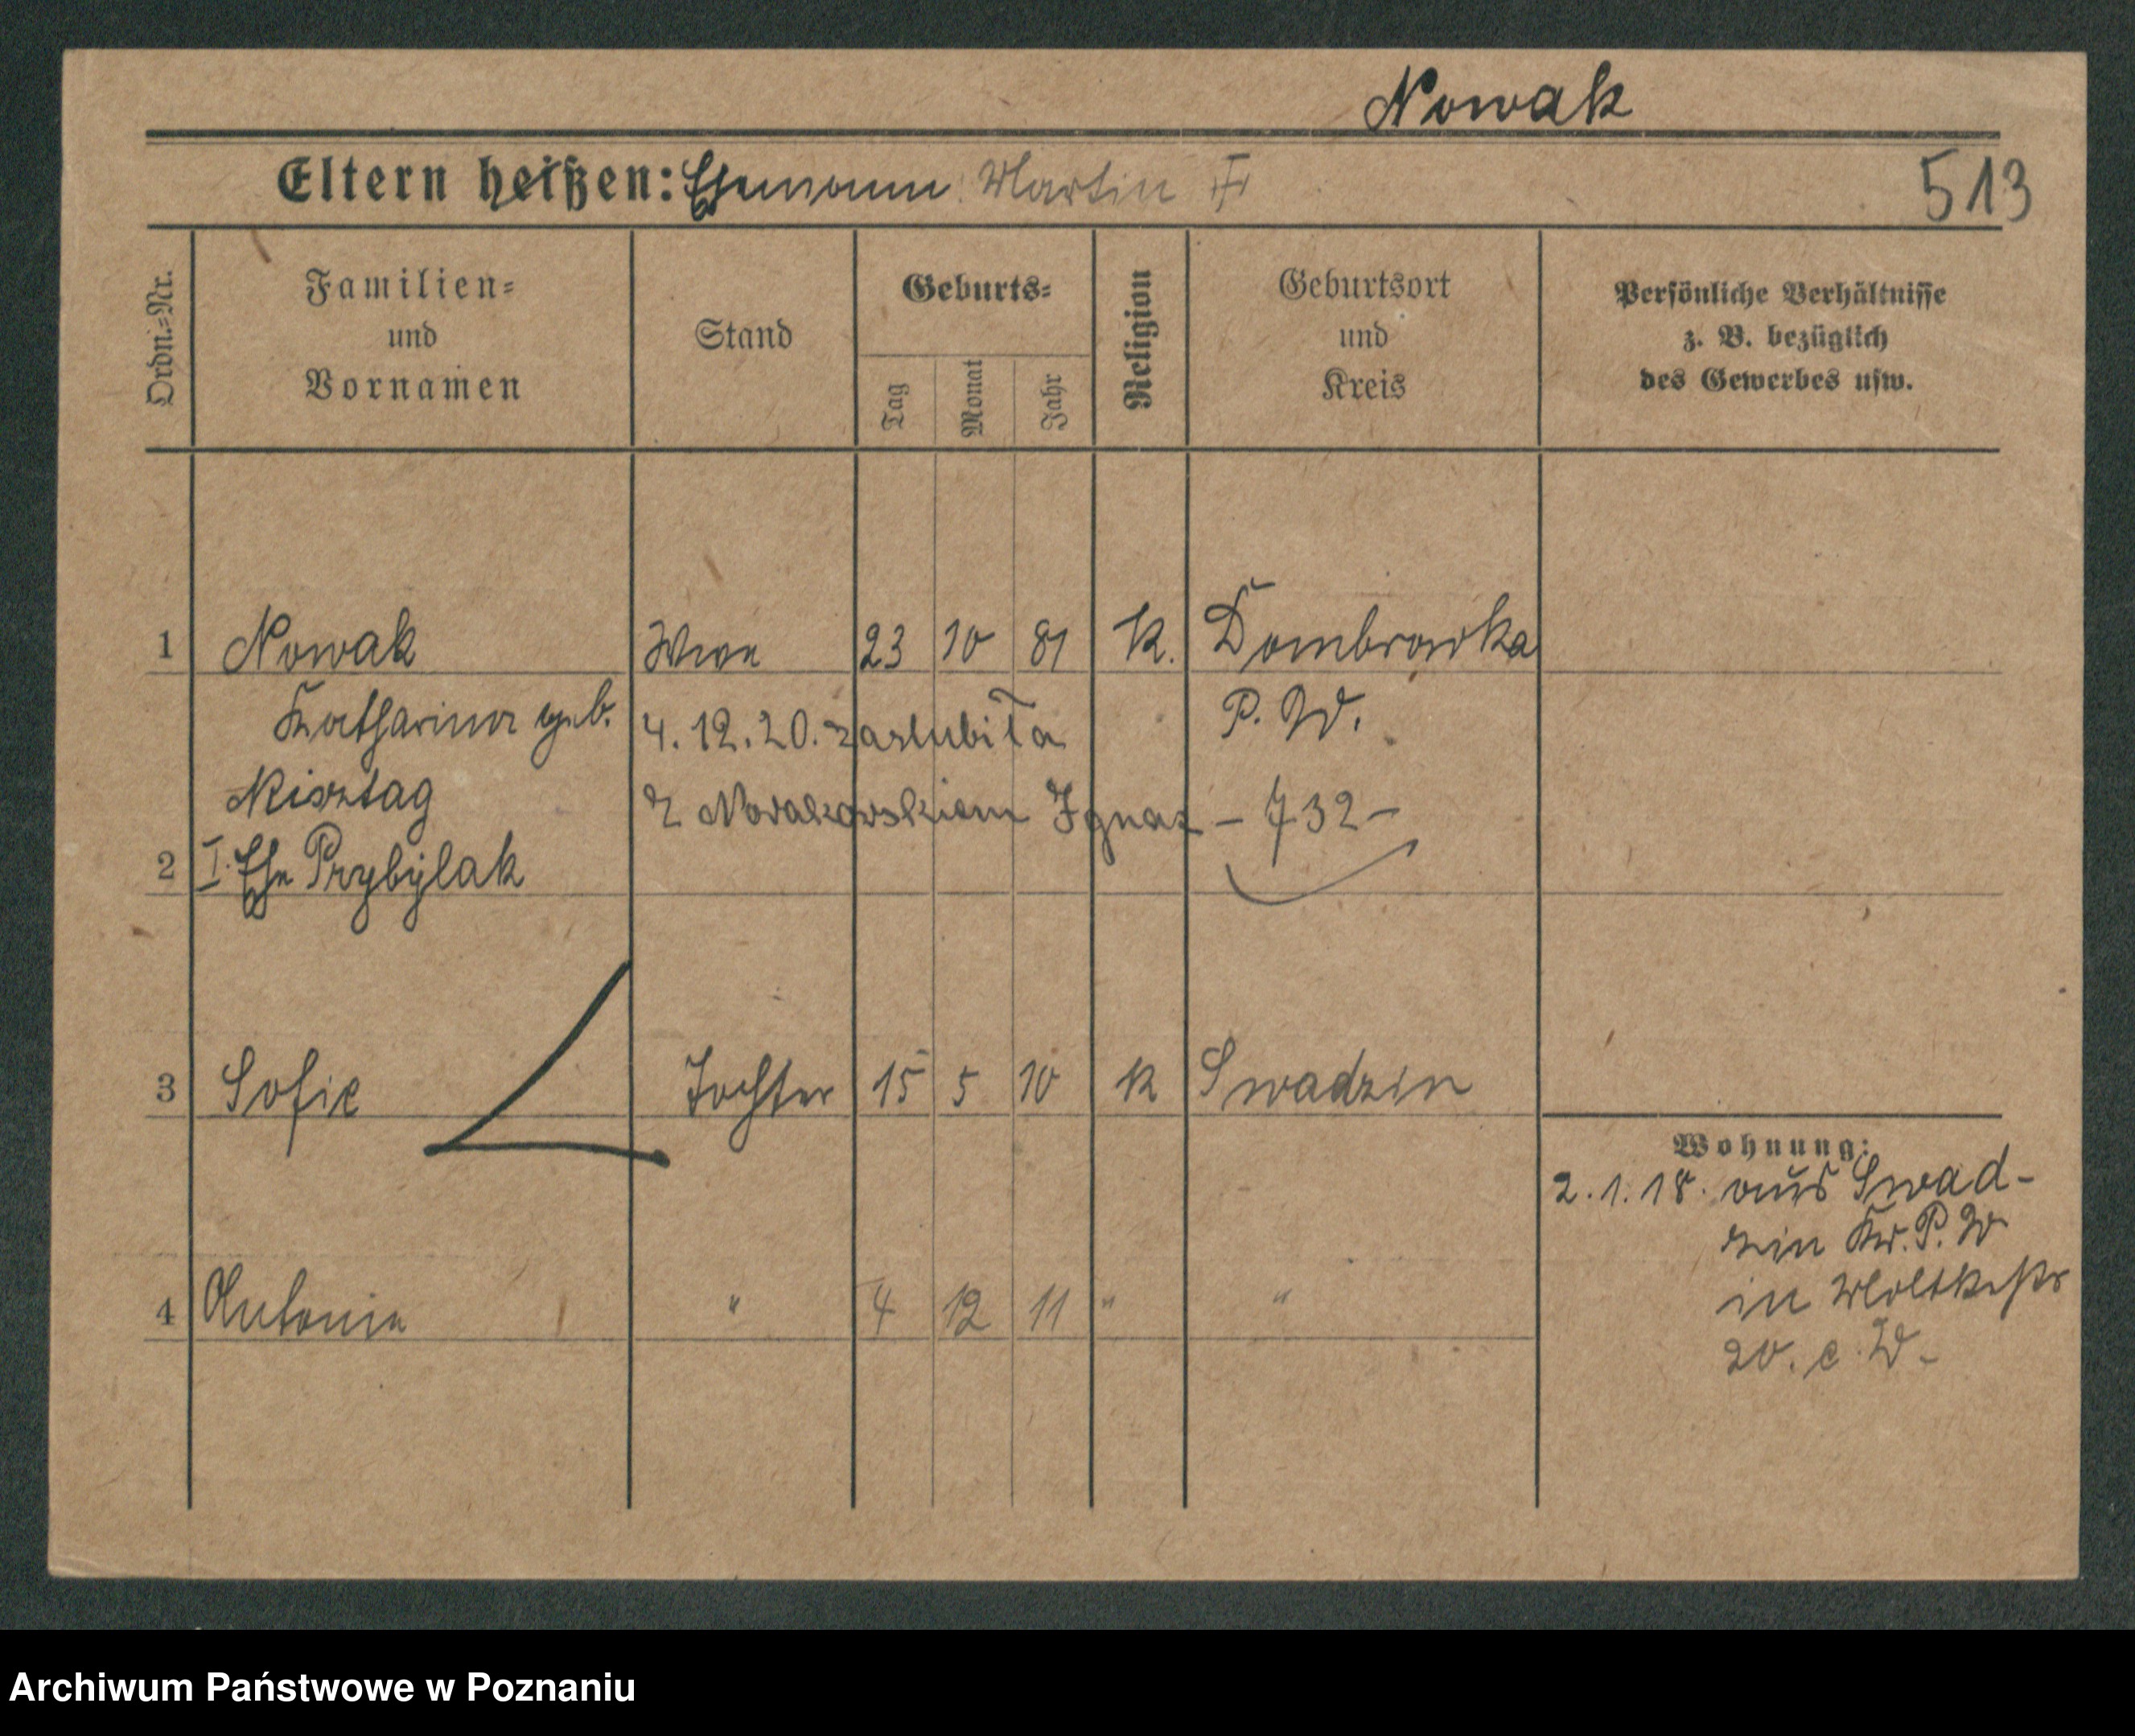 Nowak
Eltern heißen: Ehemann: Martin
513
Ordn.=Nr.
Familien=
und
Vornamen
Stand
Geburts=
Tag
Monat
Jahr
Religion
Geburtsort
und
Kreis
Persönliche Verhältnisse
z. B. bezüglich
des Gewerbes usw.
1 Nowak Wwe 23 10 81 K. Dombrowka
Katharina geb. 4.12.20. zaslubiła P. W.
z Nowakowskiem Ignaz - 732 -
2 I. Ehe Przybylak
3 Sofie Tochter 15 5 10 K Swadzin
Wohnung:
2.1.18. aus Swad-
zin Kr. P. W
4 Antonie " 4 12 11 " "
in Moltkestr
20. e. W.
Archiwum Państwowe w Poznaniu